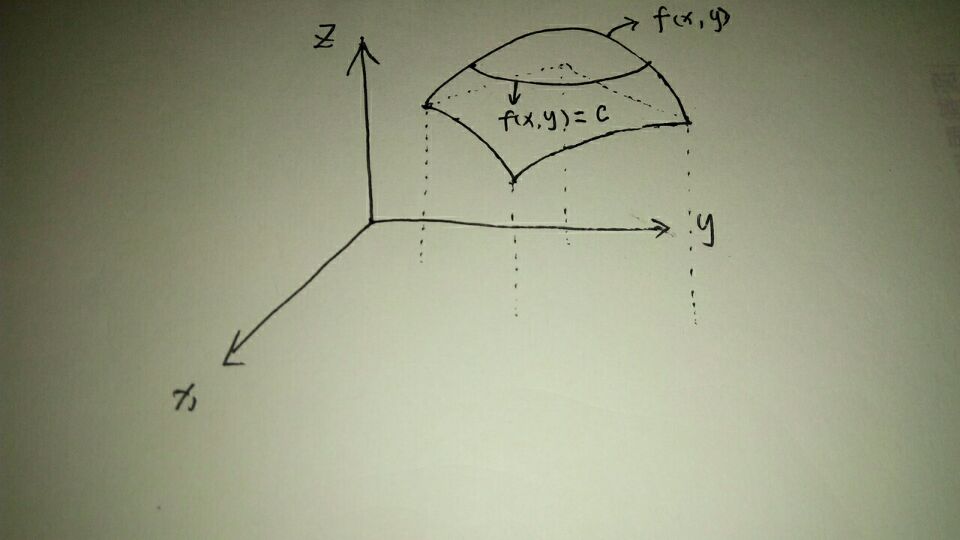 f(x,y)
Z
f(x,y)=c
y
x